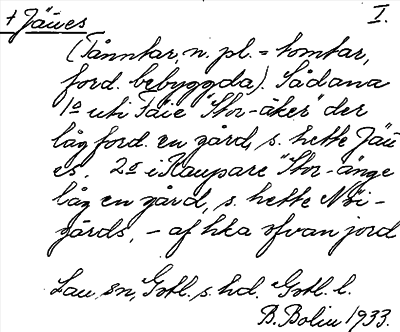 † Jäues I.
(Tånntar, n. pl. = tomtar,
ford. bebyggda). Sådana
1º uti Täie "Stor-åker" der
låg ford. en gård, s. hette Jäu
es. 2º i Kaupare "Stor-änge
låg en gård, s. hette Nöi-
gårds, – af hka ofvan jord
Lau sn, Gotl. s. hd. Gotl. l.
B. Bolin 1933.